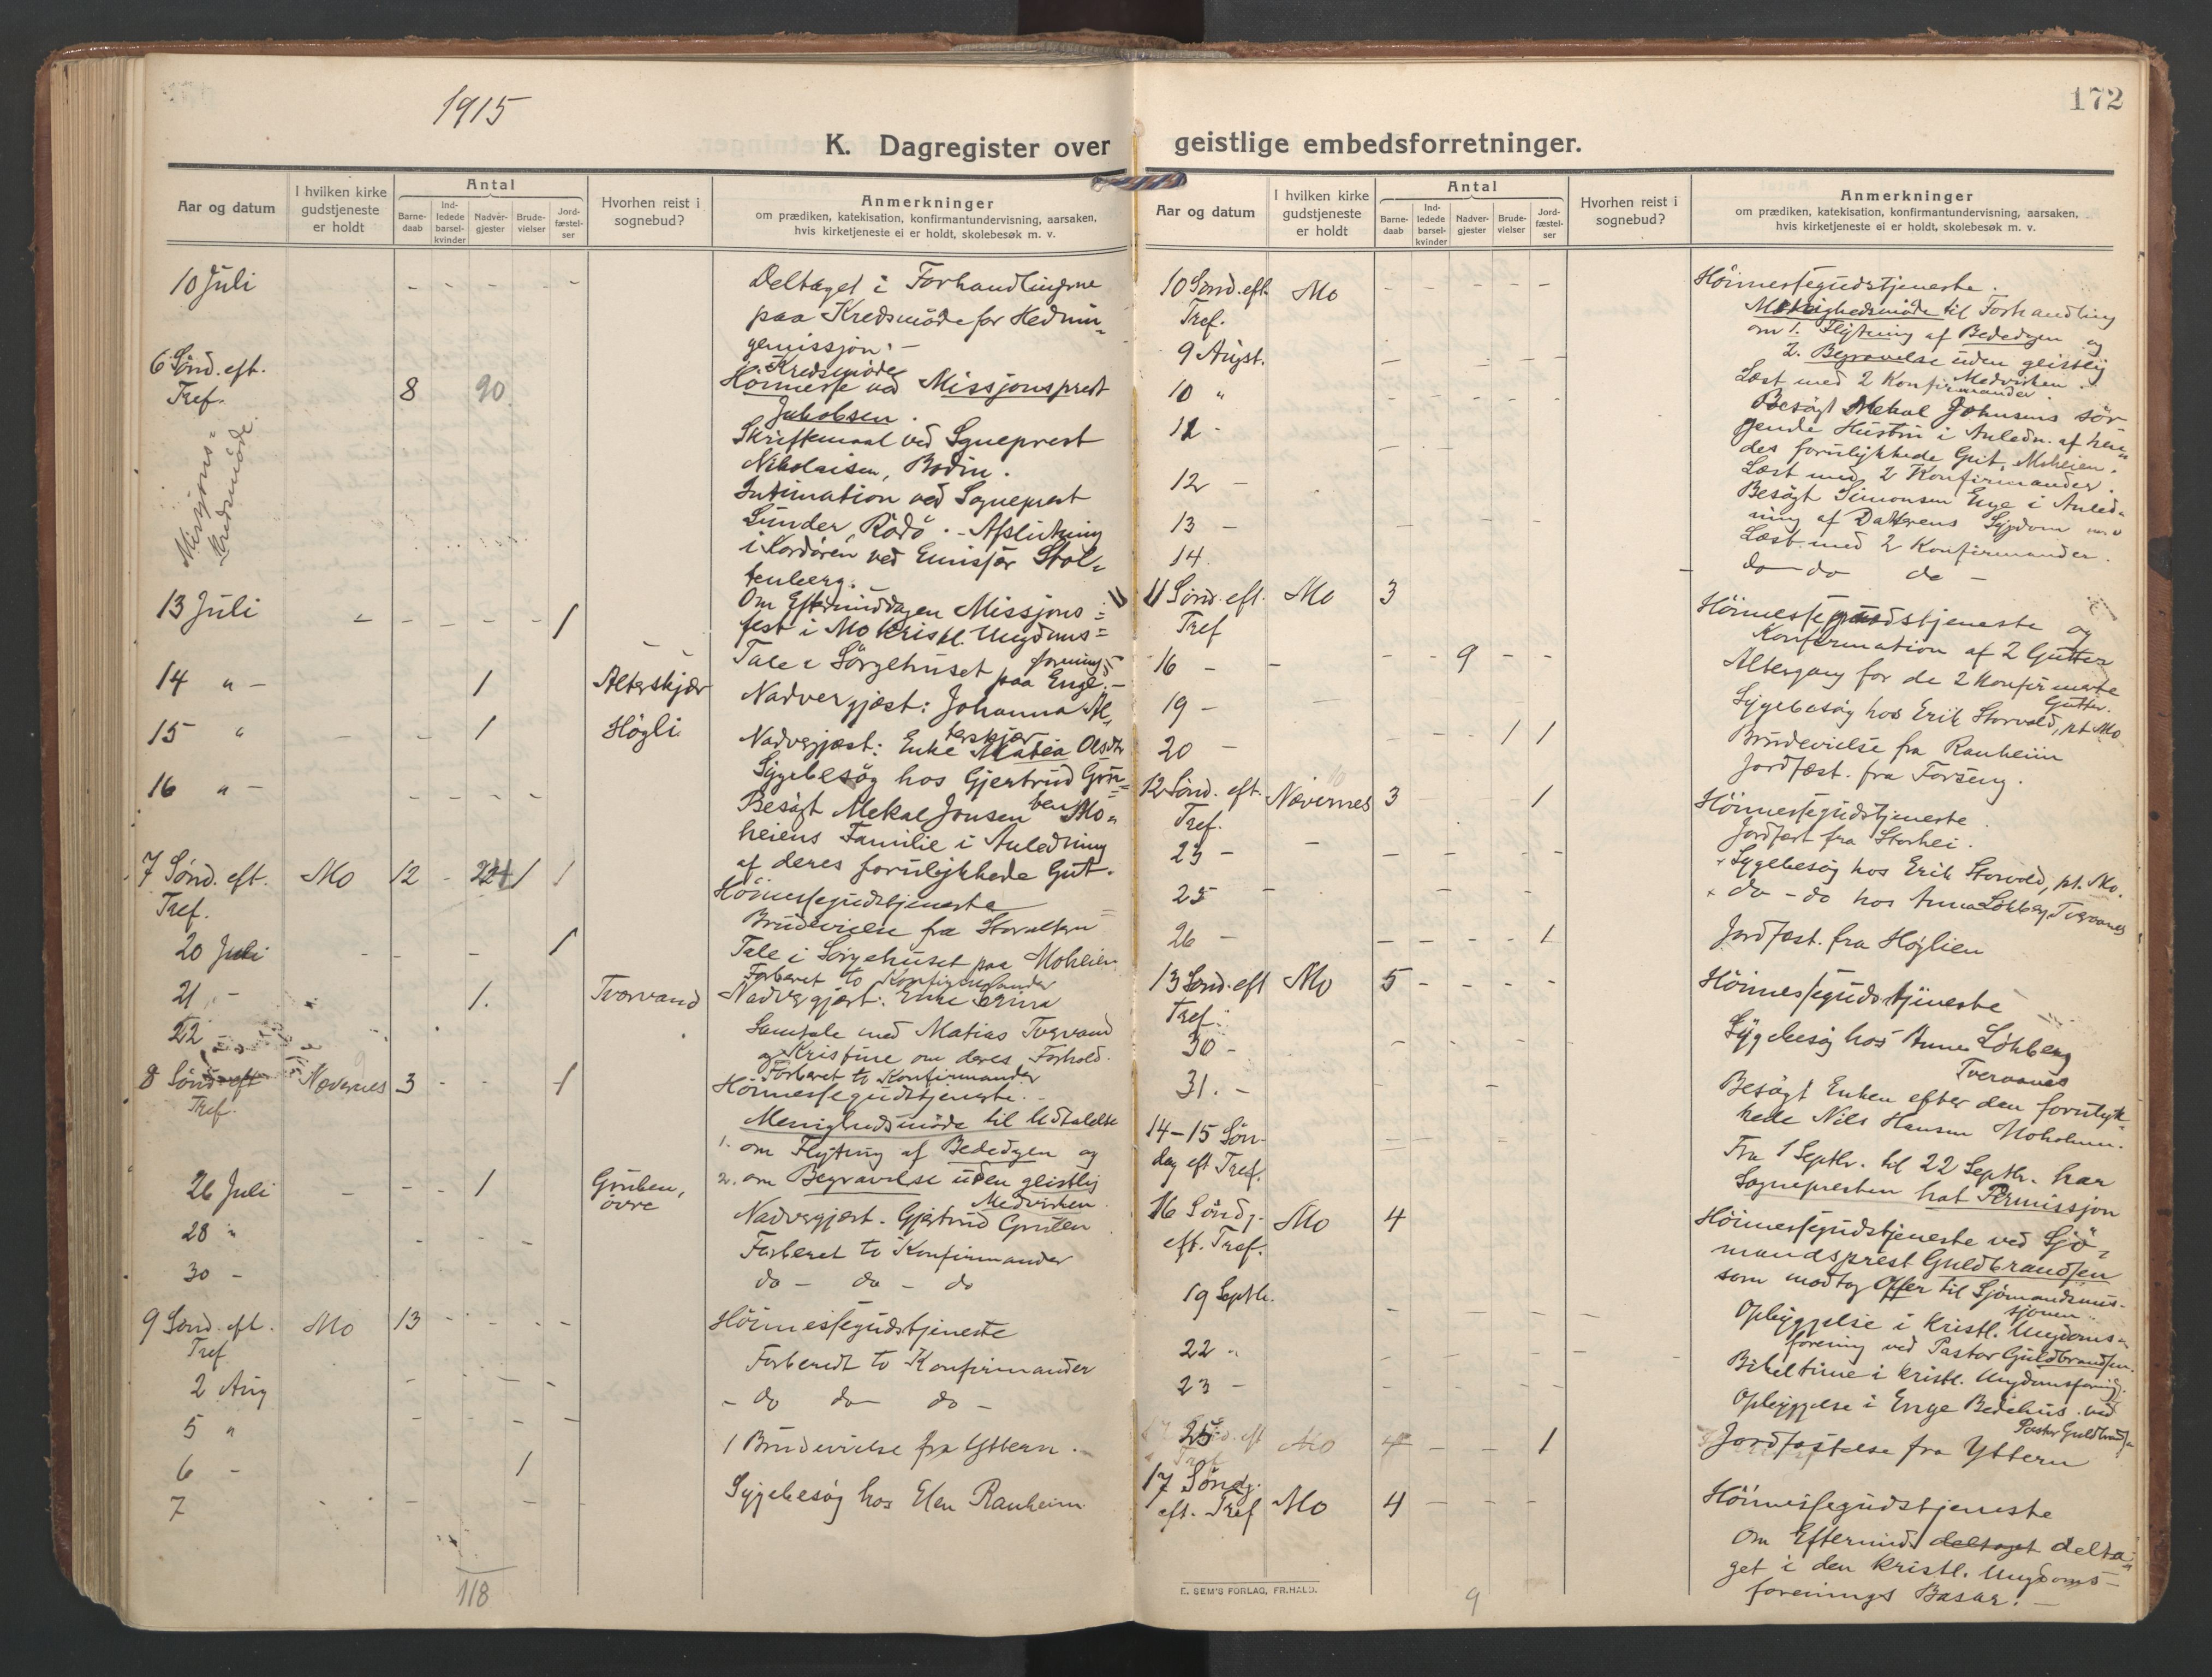 1915
172
K. Dagregister over geistlige embedsforretninger.
Aar og datum
I hvilken kirke gudstjeneste er holdt
Antal
Barne-daab
Ind-ledede barsel-kvinder
Nadver-gjester
Brude-vielser
Jord-fæstel-ser
Hvorhen reist i sognebud?
Anmerkninger
om prædiken, katekisation, konfirmantundervisning, aarsaken,
hvis kirketjeneste ei er holdt, skolebesøk m. v.
10 Juli - - - - -
Deltaget i Forhandlingerne
paa Kredsmöde for Hednin-
gemissjon. -
6 Sönd. eft.
Tref. 8 90
Missjons-
kredsmöde
Kredsmöde
Höimesse ved Missjonsprest
Jakobsen.
Skriftemaal ved Sgneprest
Nikolaisen, Bodin.
Intimation ved Sogneprest
Sunder, Rödö. - Afslutning
i Kordören ved Emissær Stol-
tenberg.
Om Eftermiddagen Missjons-
fest i Mo Kristl. Ungdoms-
forening.
13 Juli - - - - - 1
Tale i Sörgehuset paa Enge. -
14 " - 1 Alterskjær
Nadvergjæst: Johanna Al-
terskjær
15 " - - 1 Högli
Nadvergjæst: Enke Matea Olsdtr
16 " - - - - -
Sygebesög hos Gjertrud Gru-
ben
Besögt Mekal Jonsen Mo-
heiens Familie i Anledning
af deres forulykkede Gut.
7 Sönd. eft.
Tref. Mo 12 - 1 1
Höimessegudstjeneste
Brudevielse fra Storaltern
20 Juli - - - 1
Tale i Sörgehuset paa Moheien
Forberet to Konfirmander
21 - 1. Tvervand
Nadvergjæst: Enke
22
Samtale med Matias Tvervand
og Kristine om deres Forhold.
Forberet to Konfirmander
8 Sönd eft
Tref. Nævernes 3 - - - 1
Höimessegudstjeneste. -
Menighedsmöde til Udtalelse
1. om Flytning af Bededgen og
2. om Begravelse uden geistlig
Medvirken.
26 Juli - - 1 Gruben,
övre
Nadvergjæst. Gjertrud Gruben
28 " - - -
Forberet to Konfirmander
30 -
do - do - do
9 Sönd. eft.
Tref Mo 13 - - - -
Höimessegudstjeneste
2 Aug - - - -
Forberedt to Konfirmander
5 " - - - - -
- do do do -
6 - 1
1 Brudevielse fra Yttern. -
7 - -
Sygebesög hos Elen Ranheim
118
Aar og datum
I hvilken kirke gudstjeneste er holdt
Antal
Barne-daab
Ind-ledede barsel-kvinder
Nadver-gjester
Brude-vielser
Jord-fæstel-ser
Hvorhen reist i sognebud?
Anmerkninger
om prædiken, katekisation, konfirmantundervisning, aarsaken,
hvis kirketjeneste ei er holdt, skolebesøk m. v.
10 Sönd. eft.
Tref. Mo - - - - -
Höimessegudstjeneste.
Menighedsmöde til Forhandling
om 1. Flytning af Bededgen og
2. Begravelse uden geistlig
Medvirken.
9 Augst. - - - -
Læst med 2 Konfirmander.
10 " - - - - -
Besögt Mekal Johnsens sör-
gende Hustru i Anledn. af hen-
des forulykkede Gut, Moheien.
12 -
Læst med 2 Konfirmander.
12 -
Besögt Simonsen Enge i Anled-
ning af Datterens Sygdom
13 -
Læst med 2 Konfirmander.
14.
do do do -
11 Sönd. eft.
Tref Mo 3
Höimessegudstjeneste og
Konfirmation af 2 Gutter
16 - - - 9 - -
Altergang for de 2 Konfirmerte
Gutter.
19 - -
Sygebesög hos Erik Storvold, pt. Mo
20 - - - - 1 1
Brudevielse fra Ranheim
Jordfæst. fra Forseng.
12 Sönd. eft.
Tref. Nævernes 3 1
Höimessegudstjeneste.
Jordfæst fra Storhei.
23 - - - - - -
Sygebesög hos Erik Storvold, pt. Mo.
25 - - -
do - do hos Anna Lökberg, Tvervanes
26 - - - - - 1
Jordfæst. fra Höglien
13 Sönd. eft
Tref. Mo 5 - - - -
Höimessegudstjeneste
30 - - - - -
Sygebesög hos Anna Lökberg
Tvervanes
31. - - -
Besögt Enken efter den forulyk-
kede Nils Hansen Moholmen.
14-15 Sön-
dag eft Tref.
Fra 1 Septbr. til 22 Septbr. har
Sognepresten hat Permissjon
16 Söndg.
eft. Tref. Mo 4
Höimessegudstjeneste ved Sjö-
mandsprest Guldbrandsen
som modtog Offer til Sjömandsmis-
sjonen.
19 Septb. - - - - -
Opbyggelse i Kristl. Ungdoms-
forening ved Pastor Guldbrandsen.
22 "
Bibeltime i Kristl. Ungdomsforeng.
23 -
Opbyggelse i Enge Bedehus ved
Pastor Guldbrandsen
25 Mo 4 - - 1
Jordfæstelse fra Yttern
17 Söndg.
eft. Tref Mo 4 - - - -
Höimessegudstjeneste
Om Eftermid. deltaget delta-
get i den Kristl. Ungdoms-
forenings Basar. -
E. SEM'S FORLAG, FR.HALD.
9